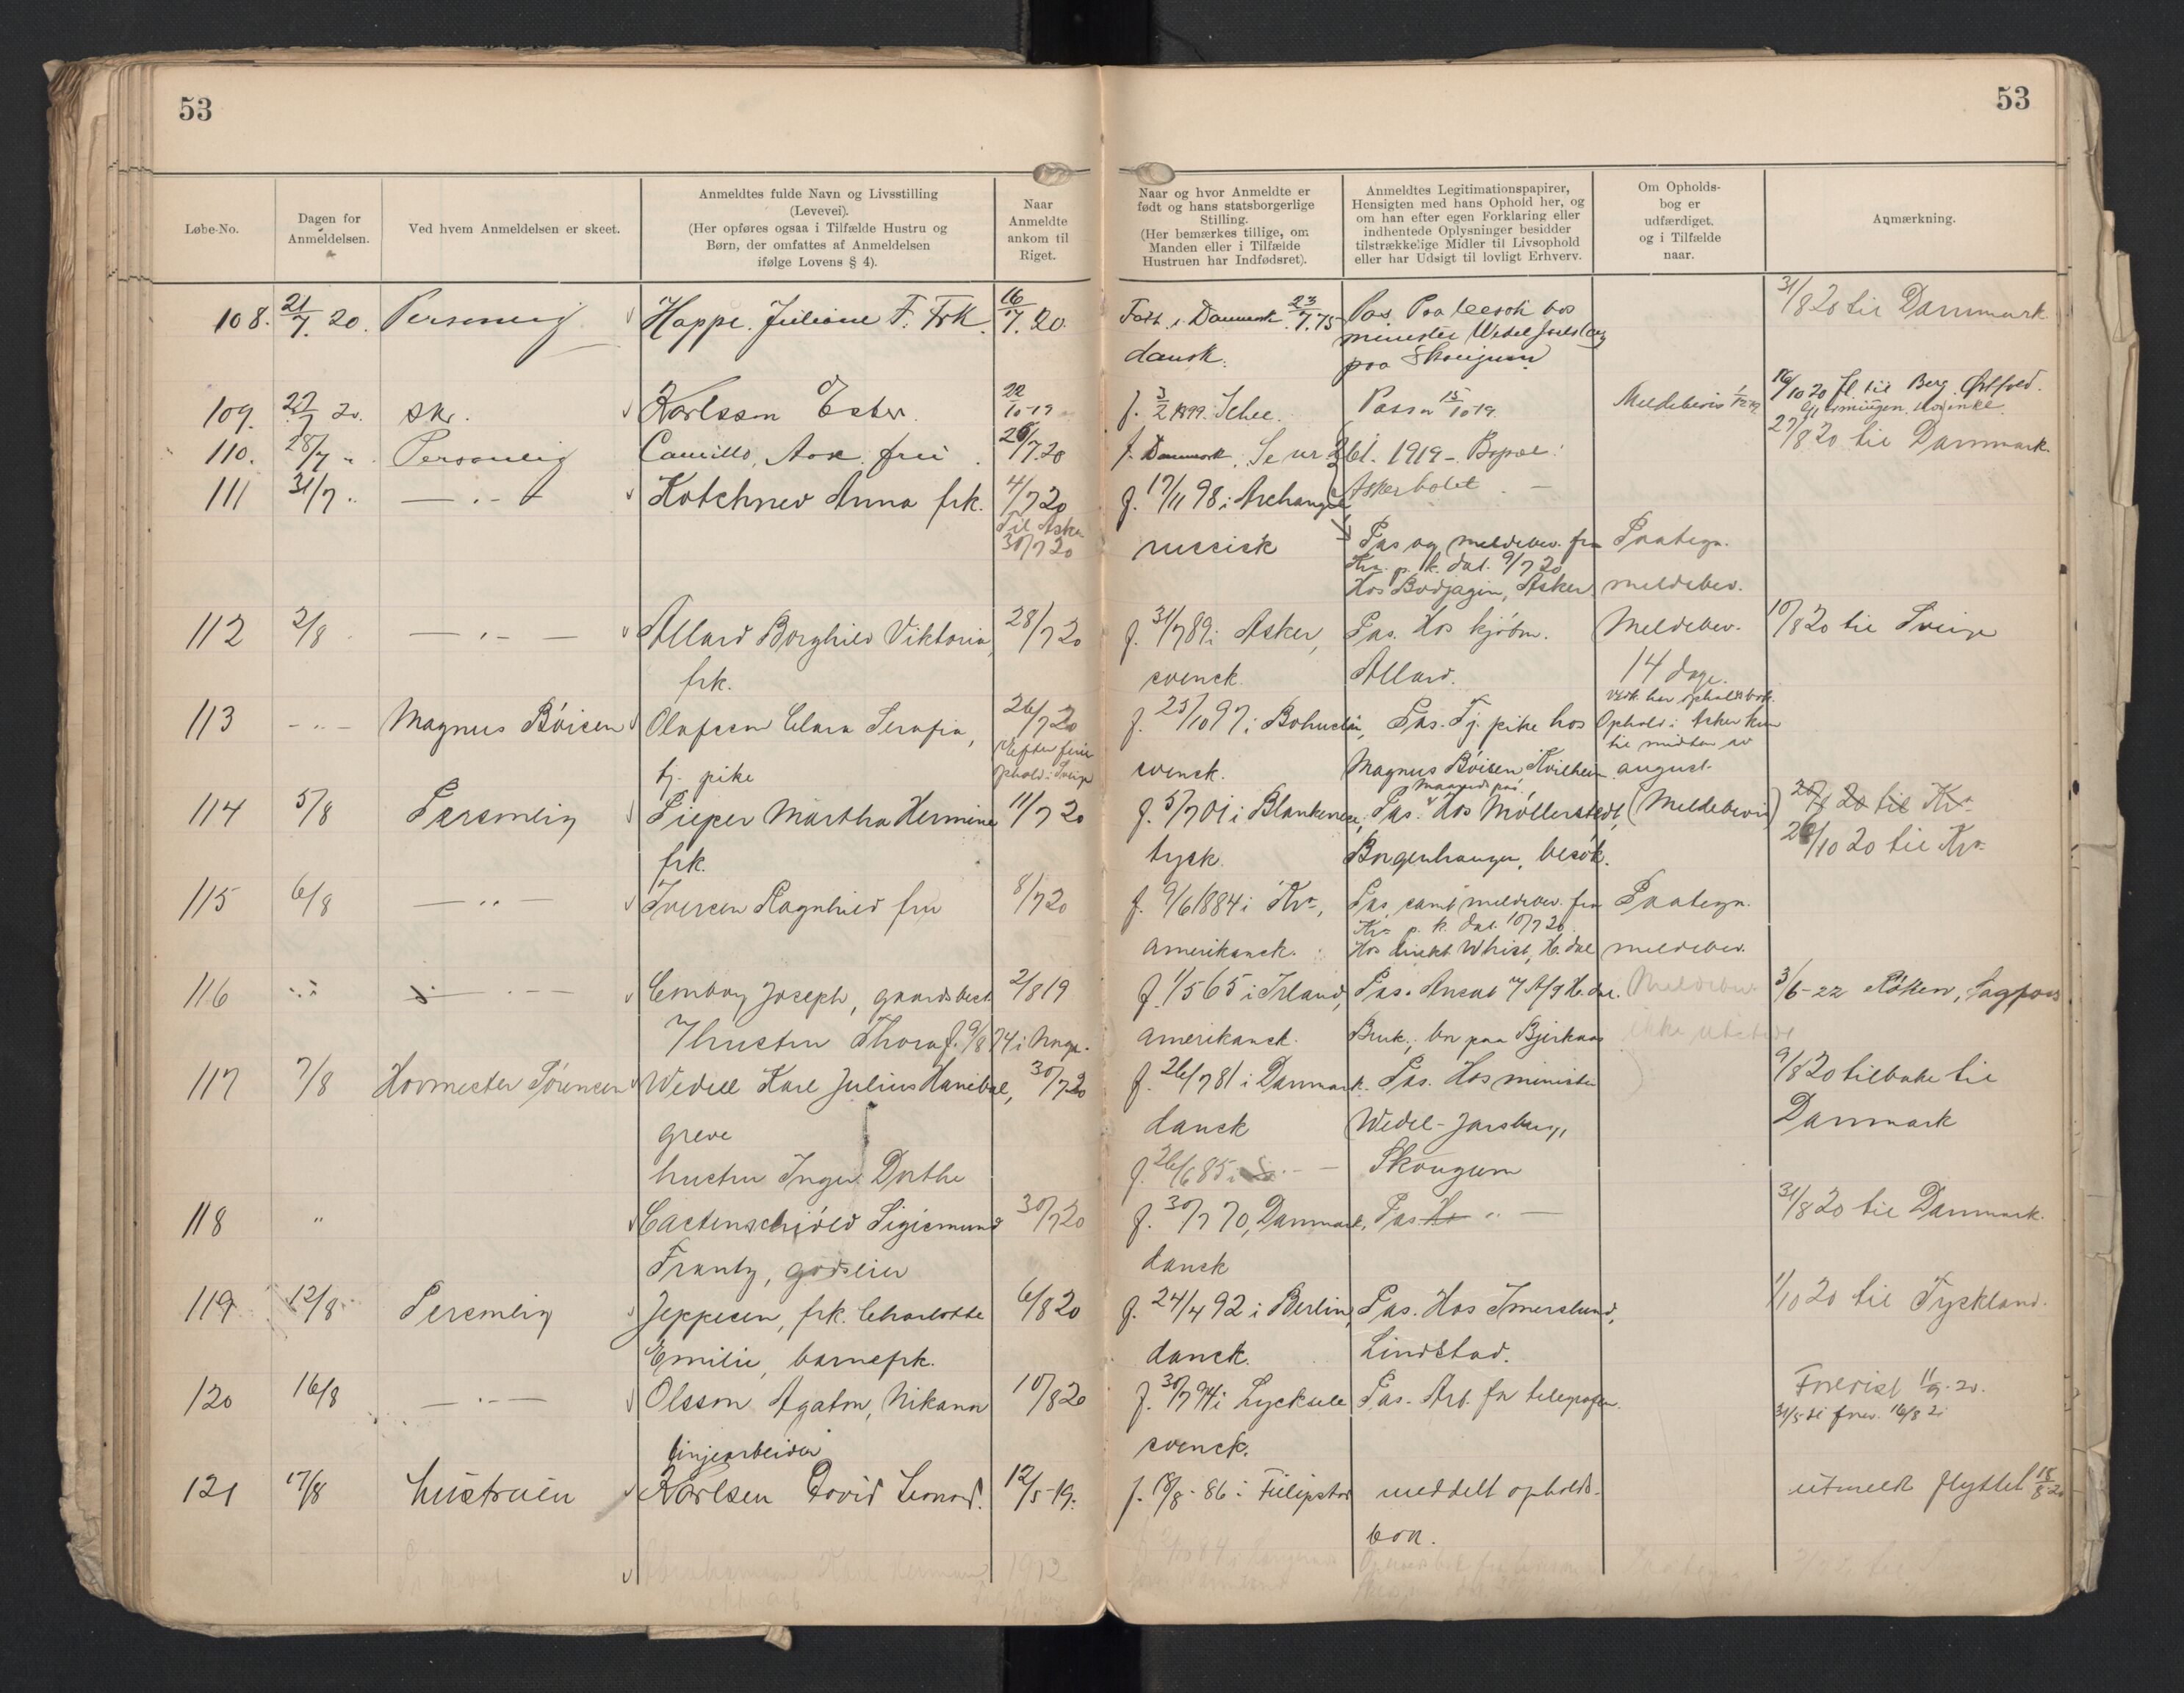 53
53
Løbe-No.
Dagen for Anmeldelsen.
Ved hvem Anmeldelsen er skeet.
Anmeldtes fulde Navn og Livsstilling
(Levevei).
(Her opføres ogsaa i Tilfælde Hustru og
Børn, der omfattes af Anmeldelsen
ifølge Lovens § 4).
Naar
Anmeldte
ankom til
Riget.
Naar og hvor Anmeldte er
født og hans statsborgerlige
Stilling.
(Her bemærkes tillige, om
Manden eller i Tilfælde
Hustruen har Indfødsret).
Anmeldtes Legitimationspapirer,
Hensigten med hans Ophold her, og
om han efter egen Forklaring eller
indhentede Oplysninger besidder
tilstrækkelige Midler til Livsophold
eller har Udsigt til lovligt Erhverv.
Om Opholds-
bog er
udfærdiget.
og i Tilfælde
naar.
Anmærkning.
108. 21/7. 20. Personlig Happe. Juliane F. Frk. 16/7. 20. Født i Danmark 23/7. 75 Pas. Paa besøk hos 31/8 20 til Danmark
minister Wedel Jarlsberg
dansk. paa Skaugum
109. 22/7 20. skr. Karlsson Ester. 22/10-19 f. 3/2 1899. Pass 15/10 19. Meldebevis 16/10 20 fl. til Berg Østfold.
110. 28/7 " Personlig Camillo, Aase, frü. 26/7.20 f. Danmark. Se nr 261. 1919 - Bopæl: 27/8 20 til Danmark.
111 31/7 " — " — Kotchnev Anna frk. 4/7 20 f. 17/11 98 i Archangel Askerholtet —
Til Asker
30/7 20 russisk Pas og meldebev. fra Paategn.
Kra. p. k. dat. 9/7 20
Hos Bodjagin, Asker meldebev.
112 2/8 — " — Allard Borghild Viktoria, 28/7 20 f. 31/7 89 i Asker, Pas. Hos kjøbm. Meldebev. 10/8 20 til Sverige
frk. svensk. Allard. 14 dage.
113 — " — Magnus Böisen Olafsson Clara Serafia, 26/7 20 f. 25/10 97 i Bohuslän, Pas. Tj. pike hos Ophold i Asker kun
Efter ferie til midten av
tj. pike ophold i Sverige svensk. Magnus Böisen, Hvilheim august
114 5/8 Personlig Pieper Martha Hermine 11/7 20 f. 5/7 01 i Blankenese, Pas. Hos Møllerstedt, (Meldebevis) 20/9 20 til Kra
frk. tysk. Borgenhaugen, besøk. 28/10 20 til Kra
115 6/8 — " — Iversen Ragnhild fru 8/7 20 f. 9/6 1884 i Kra, Pas, samt meldebev. fra Paategn.
Kra p. k. dat. 10/7 20
amerikansk. Hos direktør Whist, H.dal meldebev.
116 " — " — Conboy Joseph, gaardsbest. 2/8 19 f. 1/5 65 i Irland, Pas. Ansat v/ A/S H.dal. Meldebev. 3/6-22 Røken, Sagfoss
hustru Thora f. 9/8 74 i Norge. amerikansk. Bruk, bor paa Bjerkaas ikke utstedt
117 7/8 Hovmester Sørensen Wedell Karl Julius Hanibal, 30/7 20 f. 26/7 81 i Danmark. Pas. Hos minister 9/8 20 tilbake til
greve dansk Wedel-Jarsberg, Danmark
hustru Inger Dorthe f. 26/6 85 i — " — Skougum
118 " Castenschiold Sigismund 30/7 20 f. 30/7 70, Danmark, Pas. Ho " — 31/8 20 til Danmark.
Frantz, godseier dansk
119 12/8 Personlig Jeppesen, frk. Charlotte 6/8 20 f. 24/4 92 i Berlin, Pas. Hos Imerslund, 1/10 20 til Tyskland.
Emilie, barnefrk. dansk. Lindstad.
120 16/8 — " — Olsson Agaton, Nikanor 10/8 20 f. 30/7 94 i Lycksele Pas. Arb. for telegrafen. Forevist 11/9-20.
linjearbeider svensk.
121 17/8 hustruen Karlsen David Leonard. 12/5-19. f. 18/8-86 i Filipstad meddelt opholds- utmeldt flyttet 18/8-20
bok.
1912